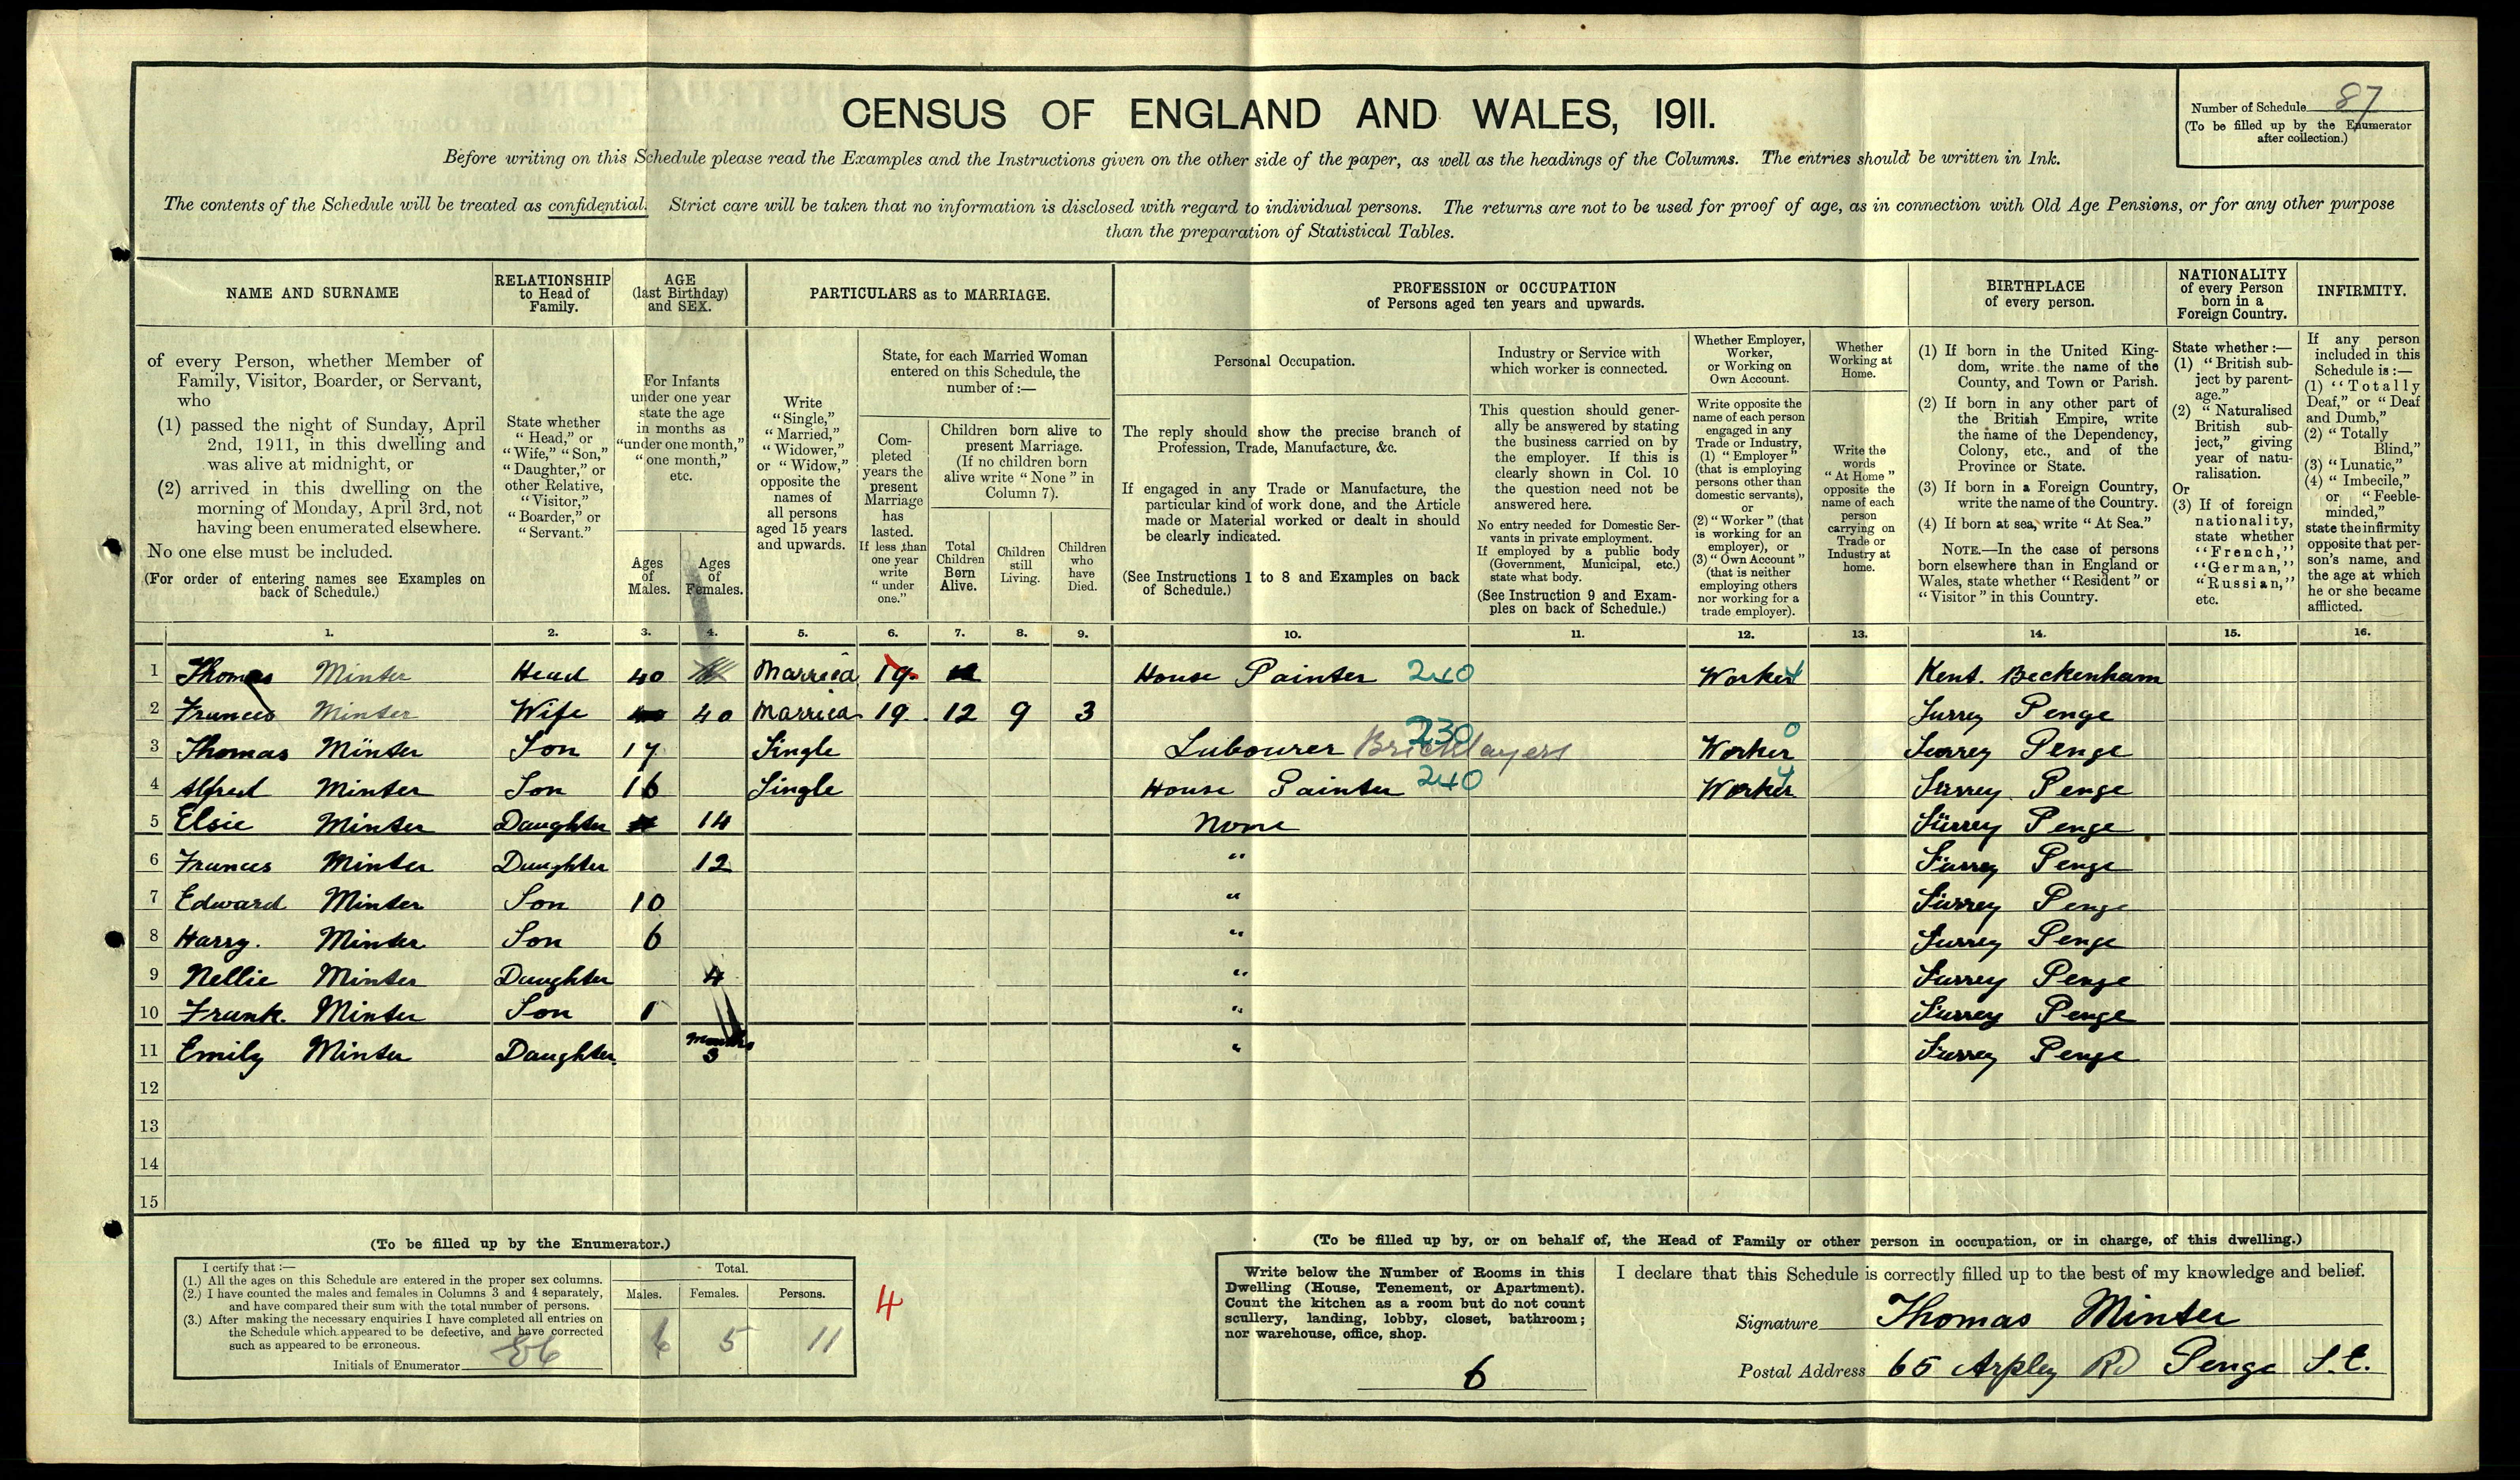 CENSUS OF ENGLAND AND WALES, 1911.
Number of Schedule 87
(To be filled up by the Enumerator
after collection.)
Before writing on this Schedule please read the Examples and the Instructions given on the other side of the paper, as well as the headings of the Columns. The entries should be written in Ink.
The contents of the Schedule will be treated as confidential. Strict care will be taken that no information is disclosed with regard to individual persons. The returns are not to be used for proof of age, as in connection with Old Age Pensions, or for any other purpose
than the preparation of Statistical Tables.
NAME AND SURNAME
of every Person, whether Member of
Family, Visitor, Boarder, or Servant,
who
(1) passed the night of Sunday, April
2nd, 1911, in this dwelling and
was alive at midnight, or
(2) arrived in this dwelling on the
morning of Monday, April 3rd, not
having been enumerated elsewhere.
No one else must be included.
(For order of entering names see Examples on
back of Schedule.)
RELATIONSHIP
to Head of
Family.
State whether
"Head," or
"Wife," "Son,"
"Daughter," or
other Relative,
"Visitor,"
"Boarder," or
"Servant."
AGE
(last Birthday)
and SEX.
For Infants
under one year
state the age
in months as
"under one month,"
"one month,"
etc.
Ages
of
Males.
Ages
of
Females.
PARTICULARS as to MARRIAGE.
Write
"Single,"
"Married,"
"Widower,"
or "Widow,"
opposite the
names of
all persons
aged 15 years
and upwards.
State, for each Married Woman
entered on this Schedule, the
number of:—
Com-
pleted
years the
present
Marriage
has
lasted.
If less than
one year
write
"under
one."
Children born alive to
present Marriage.
(If no children born
alive write "None" in
Column 7).
Total
Children
Born
Alive.
Children
still
Living.
Children
who
have
Died.
PROFESSION or OCCUPATION
of Persons aged ten years and upwards.
Personal Occupation.
The reply should show the precise branch of
Profession, Trade, Manufacture, &c.
If engaged in any Trade or Manufacture, the
particular kind of work done, and the Article
made or Material worked or dealt in should
be clearly indicated.
(See Instructions 1 to 8 and Examples on back
of Schedule.)
Industry or Service with
which worker is connected.
This question should gener-
ally be answered by stating
the business carried on by
the employer. If this is
clearly shown in Col. 10
the question need not be
answered here.
No entry needed for Domestic Ser-
vants in private employment.
If employed by a public body
(Government, Municipal, etc.)
state what body.
(See Instruction 9 and Exam-
ples on back of Schedule.)
Whether Employer,
Worker,
or Working on
Own Account.
Write opposite the
name of each person
engaged in any
Trade or Industry,
(1) "Employer"
(that is employing
persons other than
domestic servants),
or
(2) "Worker" (that
is working for an
employer), or
(3) "Own Account"
(that is neither
employing others
nor working for a
trade employer).
Whether
Working at
Home.
Write the
words
"At Home"
opposite the
name of each
person
carrying on
Trade or
Industry at
home.
BIRTHPLACE
of every person.
(1) If born in the United King-
dom, write the name of the
County, and Town or Parish.
(2) If born in any other part of
the British Empire, write
the name of the Dependency,
Colony, etc., and of the
Province or State.
(3) If born in a Foreign Country,
write the name of the Country.
(4) If born at sea, write "At Sea."
NOTE.—In the case of persons
born elsewhere than in England or
Wales, state whether "Resident" or
"Visitor" in this Country.
NATIONALITY
of every Person
born in a
Foreign Country.
State whether:—
(1) "British sub-
ject by parent-
age."
(2) "Naturalised
British sub-
ject," giving
year of natu-
ralisation.
Or
(3) If of foreign
nationality,
state whether
"French,"
"German,"
"Russian,"
etc.
INFIRMITY.
If any person
included in this
Schedule is:—
(1) "Totally
Deaf," or "Deaf
and Dumb,"
(2) "Totally
Blind,"
(3) "Lunatic,"
(4) "Imbecile,"
or "Feeble-
minded,"
state the infirmity
opposite that per-
son's name, and
the age at which
he or she became
afflicted.
1. 2. 3. 4. 5. 6. 7. 8. 9. 10. 11. 12. 13. 14. 15. 16.
1 Thomas Minter Head 40 Married 19 House Painter 240 Worker 4 Kent. Beckenham
2 Frances Minter Wife 40 Married 19 12 9 3 Surrey Penge
3 Thomas Minter Son 17 Single Labourer Bricklayers 230 Worker 0 Surrey Penge
4 Alfred Minter Son 16 Single House Painter 240 Worker 4 Surrey Penge
5 Elsie Minter Daughter 14 None Surrey Penge
6 Frances Minter Daughter 12 " Surrey Penge
7 Edward Minter Son 10 " Surrey Penge
8 Harry. Minter Son 6 " Surrey Penge
9 Nellie Minter Daughter 4 " Surrey Penge
10 Frank. Minter Son 1 " Surrey Penge
11 Emily Minter Daughter months 3 " Surrey Penge
12
13
14
15
(To be filled up by the Enumerator.)
I certify that:—
(1.) All the ages on this Schedule are entered in the proper sex columns.
(2.) I have counted the males and females in Columns 3 and 4 separately,
and have compared their sum with the total number of persons.
(3.) After making the necessary enquiries I have completed all entries on
the Schedule which appeared to be defective, and have corrected
such as appeared to be erroneous.
Initials of Enumerator
Total.
Males. Females. Persons.
6 5 11
4
(To be filled up by, or on behalf of, the Head of Family or other person in occupation, or in charge, of this dwelling.)
Write below the Number of Rooms in this
Dwelling (House, Tenement, or Apartment).
Count the kitchen as a room but do not count
scullery, landing, lobby, closet, bathroom;
nor warehouse, office, shop.
6
I declare that this Schedule is correctly filled up to the best of my knowledge and belief.
Signature Thomas Minter
Postal Address 65 Arpley Rd Penge S.E.